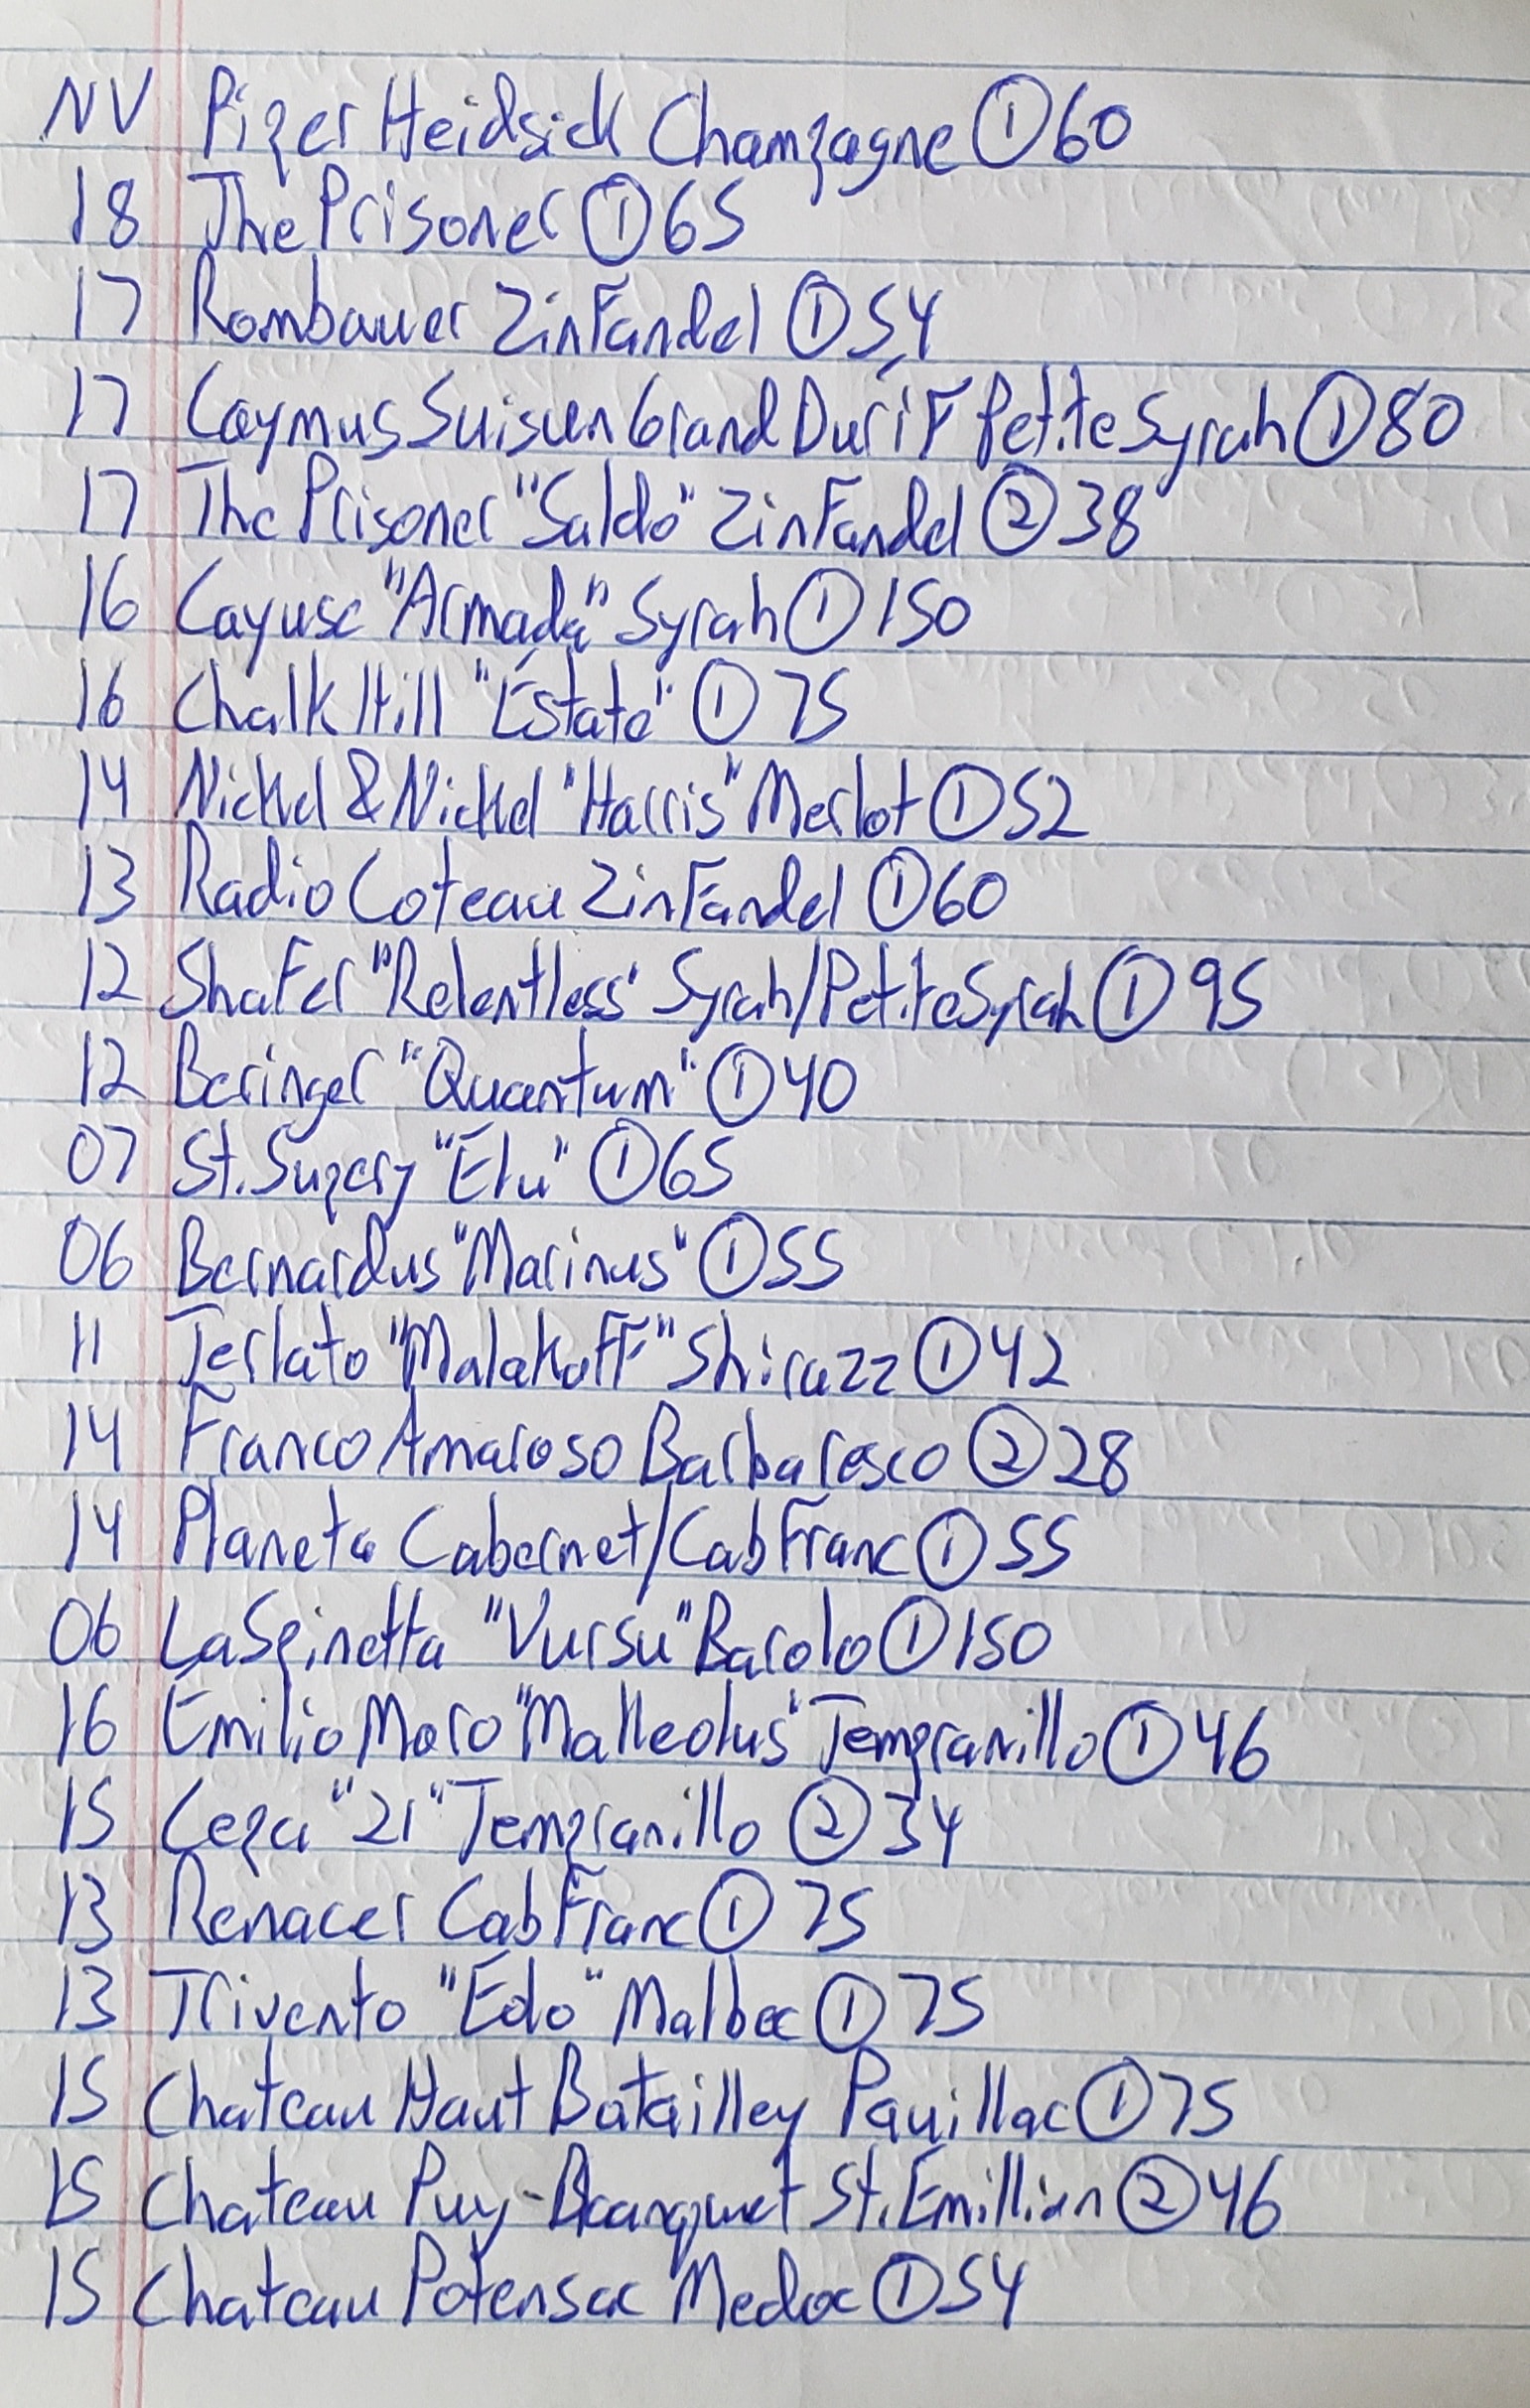 NV Piper Heidsick Champagne ① 60
18 The Prisoner ① 65
17 Rombauer Zinfandel ① 54
17 Caymus Suisun Grand Durif Petite Syrah ① 80
17 The Prisoner "Saldo" Zinfandel ② 38
16 Cayuse "Armada" Syrah ① 150
16 Chalk Hill "Estate" ① 75
14 Nickel & Nickel "Harris" Merlot ① 52
13 Radio Coteau Zinfandel ① 60
12 Shafer "Relentless" Syrah/Petite Syrah ① 95
12 Beringer "Quantum" ① 40
07 St. Supery "Elu" ① 65
06 Bernardus "Marinus" ① 55
11 Terlato "Malakoff" Shirazz ① 42
14 Franco Amaroso Barbaresco ② 28
14 Planeta Cabernet/Cab Franc ① 55
06 La Spinetta "Vursu" Barolo ① 150
16 Emilio Moro "Malleolus" Tempranillo ① 46
15 Cepa "21" Tempranillo ② 34
13 Renacer Cab Franc ① 75
13 Trivento "Eolo" Malbec ① 75
15 Chateau Haut Batailley Pauillac ① 75
15 Chateau Puy-Blanquet St. Emillian ② 46
15 Chateau Potensac Medoc ① 54